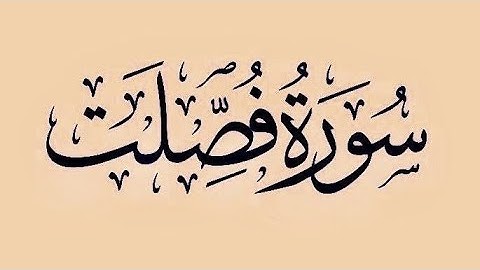 سُورَةُ فُصِّلَتْ